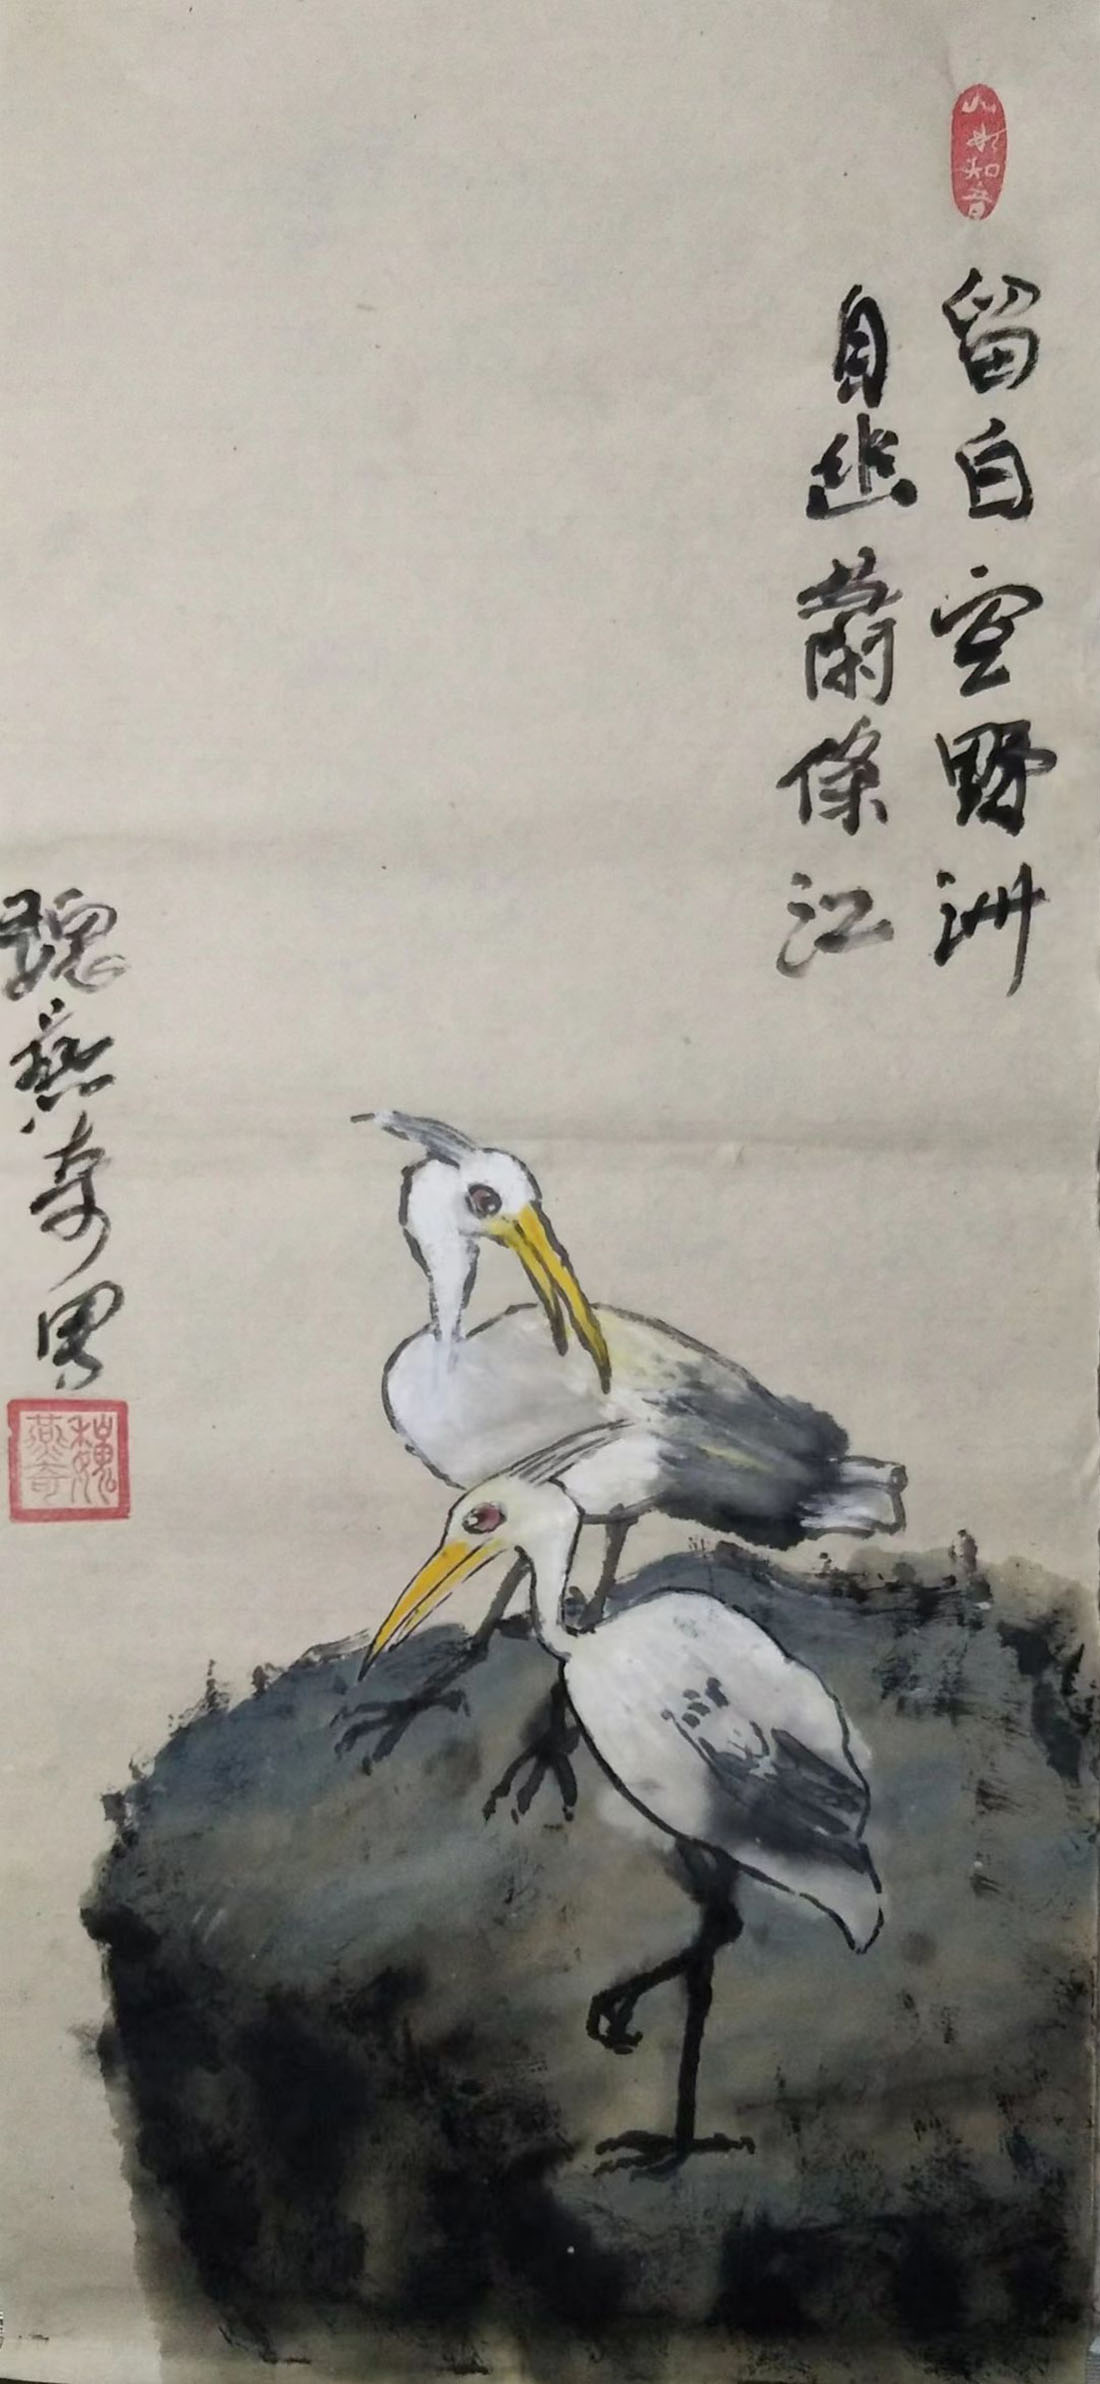 山水知音
留白空野洲
自幽蘭條江
魏燕奇畧
魏燕奇